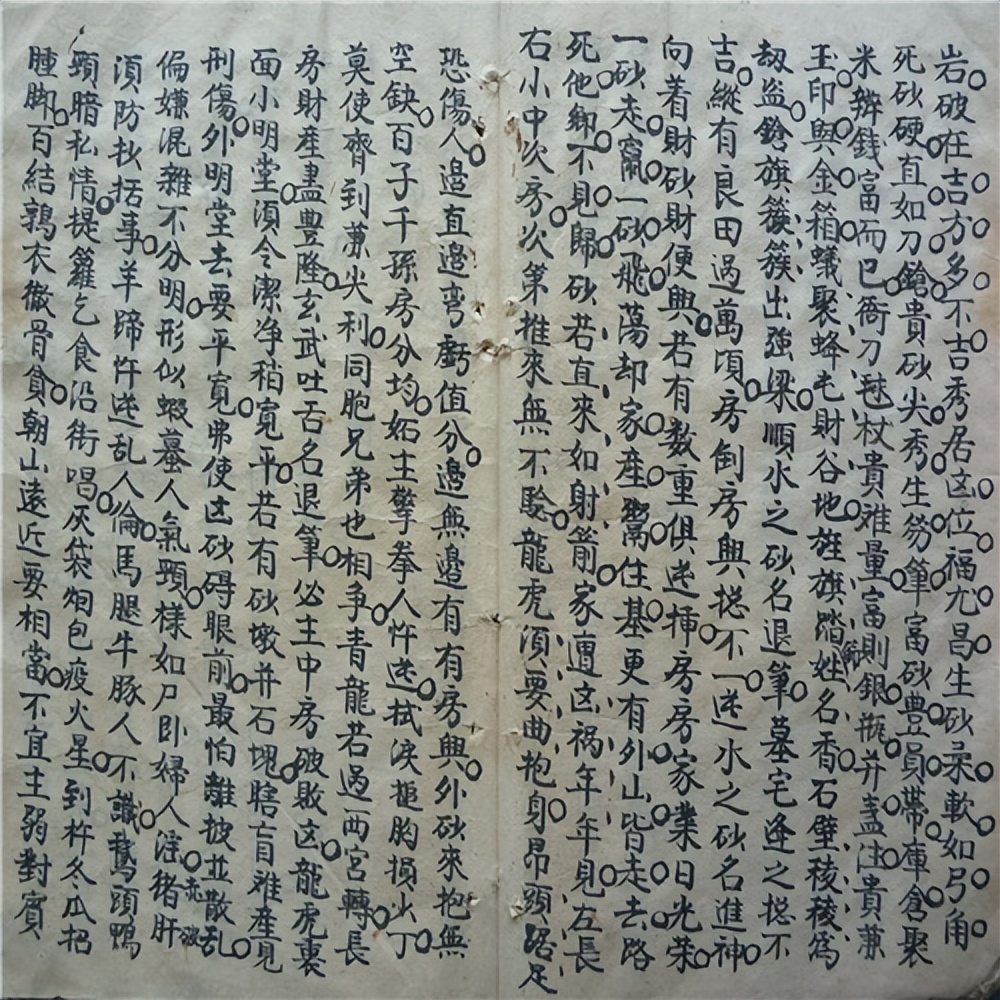 岩破在吉方多不吉秀居这位福尤昌生砂柔軟如弓角
死砂硬直如刀鎗貴砂尖秀生笏筆富砂豊員帶庫倉聚
米辨錢富而已衙刀毬杖貴难量富則銀瓶并盞注貴兼
玉印與金箱蟻聚蜂屯財谷地旌旗踏姓名香石壁稜稜爲
刼盗鎗旗簇簇出強梁順水之砂名退筆墓宅逢之揔不
吉縱有良田過萬頃房倒房興揔不一逆水之砂名進神
向着財砂財便興若有数重俱逆挿房房家業日光荣
一砂走竄一砂飛蕩却家産鬻住基更有外山皆走去路
死他鄉不見歸砂若直來如射箭家遭这祸年年見左長
右小中次房次第推來無不驗龍虎湏要曲抱身昂頭踏足
恐傷人邉直邉弯虧值分邉無邉有有房興外砂來抱無
空缺百子千孫房分均妬主攣拳人忤逆拭淚搥胸損少丁
莫使齊到兼尖利同胞兄弟也相争青龍若過西宮轉長
房財產盡豊隆玄武吐舌名退筆必主中房破敗这龍虎裏
面小明堂湏令潔净稍寛平若有砂墩并石塊瞎盲难產見
刑傷外明堂去要平寛弗使这砂碍眼前最怕離披並散乱
偏嫌混雜不分明形似蝦蟇人氣頸樣如尸卧婦人淫猪肝
湏防抄括事羊蹄忤逆乱人倫馬腿牛豚人不讖鵞頭鴨
頸暗私情提籮乞食沿街唱灰袋烟包疫火星到杵冬瓜招
腫脚百結鶉衣徹骨貧朝山遠近要相當不宜主弱對賓